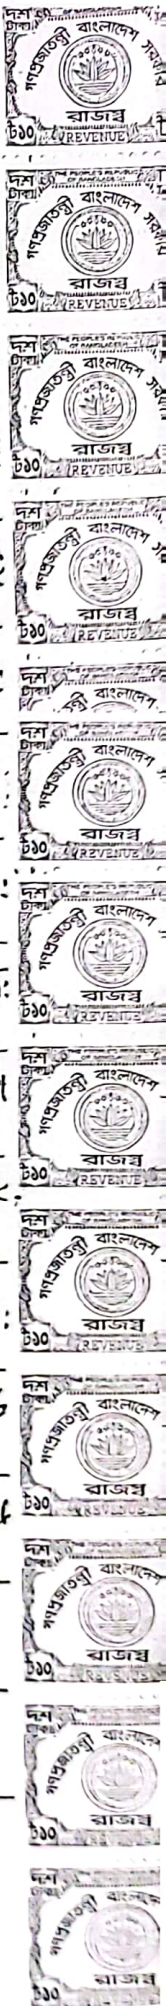 দশ
টাকা
গণপ্রজাতন্ত্রী বাংলাদেশ সরকার
রাজস্ব
৳১০ REVENUE
দশ THE PEOPLE'S REPUBLIC
টাকা OF BANGLADESH
গণপ্রজাতন্ত্রী বাংলাদেশ সরকার
রাজস্ব
৳১০ REVENUE
দশ THE PEOPLE'S REPUBLIC
টাকা OF BANGLADESH
গণপ্রজাতন্ত্রী বাংলাদেশ সরকার
রাজস্ব
৳১০ REVENUE
দশ
টাকা
গণপ্রজাতন্ত্রী বাংলাদেশ
রাজস্ব
৳১০ REVENUE
দশ
টাকা
বাংলাদেশ
দশ
টাকা
গণপ্রজাতন্ত্রী বাংলাদেশ
রাজস্ব
৳১০ REVENUE
দশ
টাকা
গণপ্রজাতন্ত্রী বাংলাদেশ
রাজস্ব
৳১০ REVENUE
দশ
টাকা
গণপ্রজাতন্ত্রী বাংলাদেশ
রাজস্ব
৳১০ REVENUE
দশ
টাকা
গণপ্রজাতন্ত্রী বাংলাদেশ
রাজস্ব
৳১০ REVENUE
দশ
টাকা
গণপ্রজাতন্ত্রী বাংলাদেশ
রাজস্ব
৳১০ REVENUE
দশ
টাকা
গণপ্রজাতন্ত্রী বাংলাদেশ
রাজস্ব
৳১০
দশ
টাকা
গণপ্রজাতন্ত্রী বাংলাদেশ
রাজস্ব
৳১০
দশ
টাকা
গণপ্রজাতন্ত্রী বাংলাদেশ
রাজস্ব
৳১০